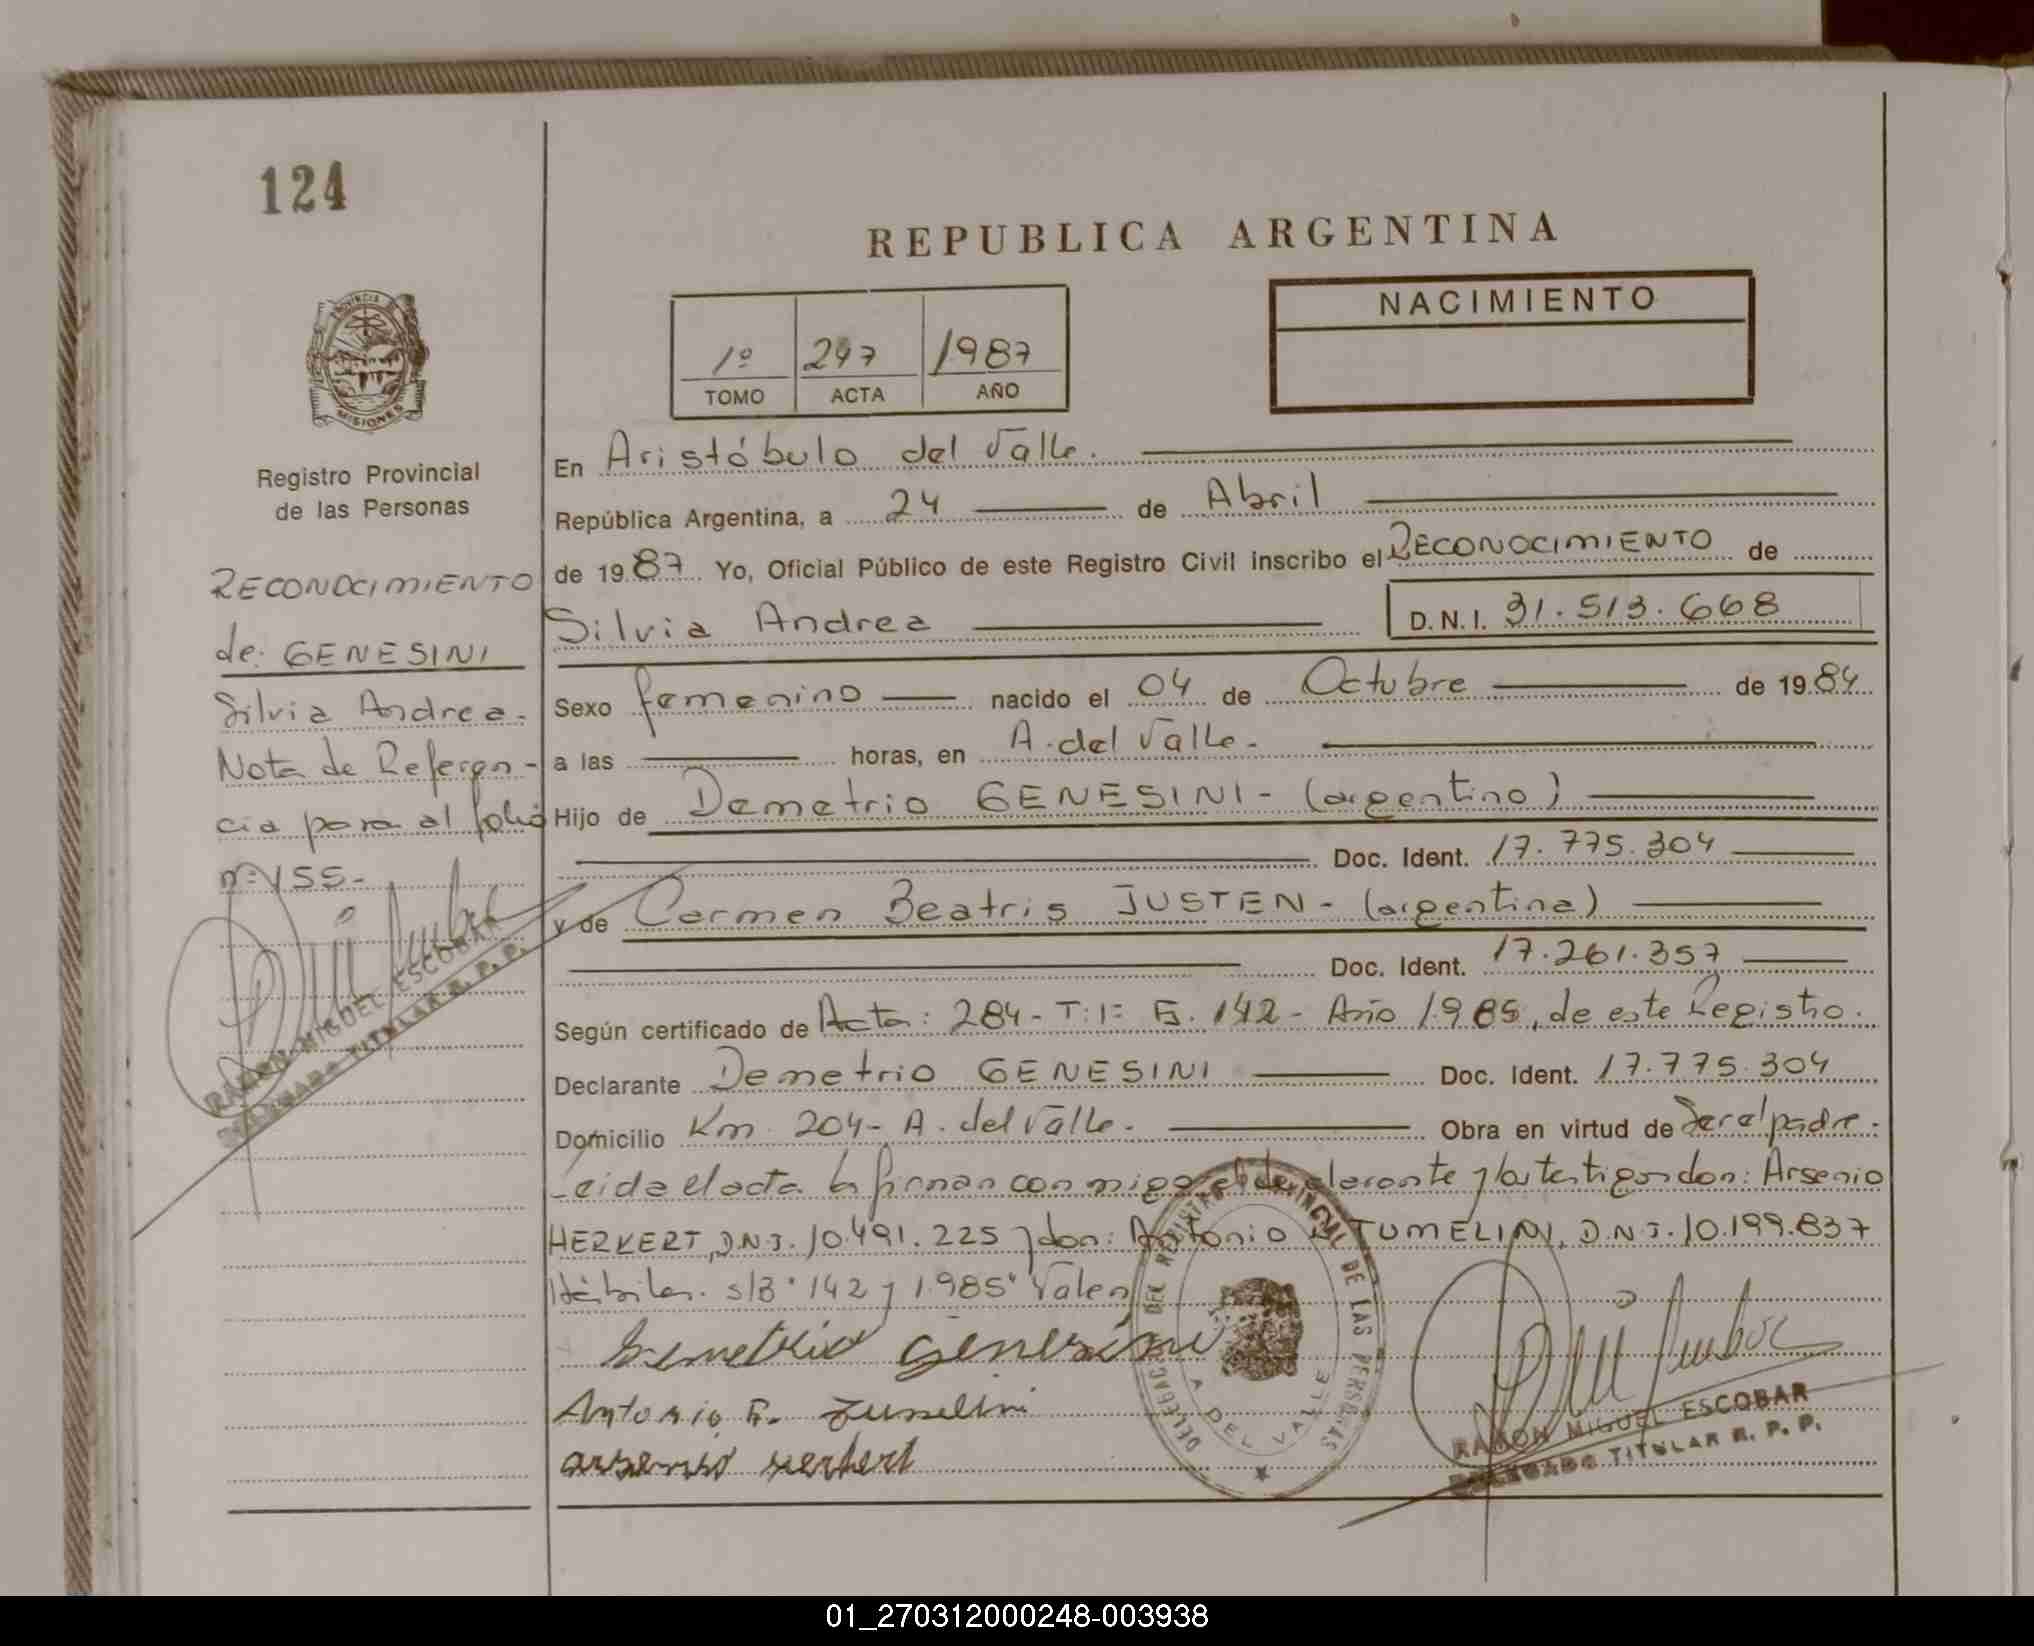 124
REPUBLICA ARGENTINA
NACIMIENTO
1º 247 1987
TOMO ACTA AÑO
PROVINCIA DE MISIONES
Registro Provincial
de las Personas
RECONOCIMIENTO
de: GENESINI
Silvia Andrea.
Nota de Referen-
cia para al folio
nº 155-
RAMON MIGUEL ESCOBAR
DELEGADO TITULAR R. P. P.
En Aristóbulo del Valle.
República Argentina, a 24 de Abril
de 1987 Yo, Oficial Público de este Registro Civil inscribo el RECONOCIMIENTO de
Silvia Andrea D.N.I. 31.513.668
Sexo femenino nacido el 04 de Octubre de 1984
a las horas, en A. del Valle-
Hijo de Demetrio GENESINI- (argentino)
Doc. Ident. 17.775.304
y de Carmen Beatris JUSTEN- (argentina)
Doc. Ident. 17.261.357
Según certificado de Acta: 284- T:1º F. 142- Año 1985, de este Registro.
Declarante Demetrio GENESINI Doc. Ident. 17.775.304
Domicilio Km. 204- A. del Valle. Obra en virtud de Ser el padre.
Leida el acta la firman con migo el declarante y los testigos don: Arsenio
HERKERT, D.N.I. 10.491.225 y don: Antonio TUMELINI, D.N.I. 10.199.837
Hábiles. s/B "142 y 1.985" Valen
Demetrio Genesini
Antonio F. Tumelini
arsenio herkert
DELEGAC. DEL REGISTRO PROVINCIAL DE LAS PERSONAS
A. DEL VALLE
RAMON MIGUEL ESCOBAR
DELEGADO TITULAR R. P. P.
01_270312000248-003938